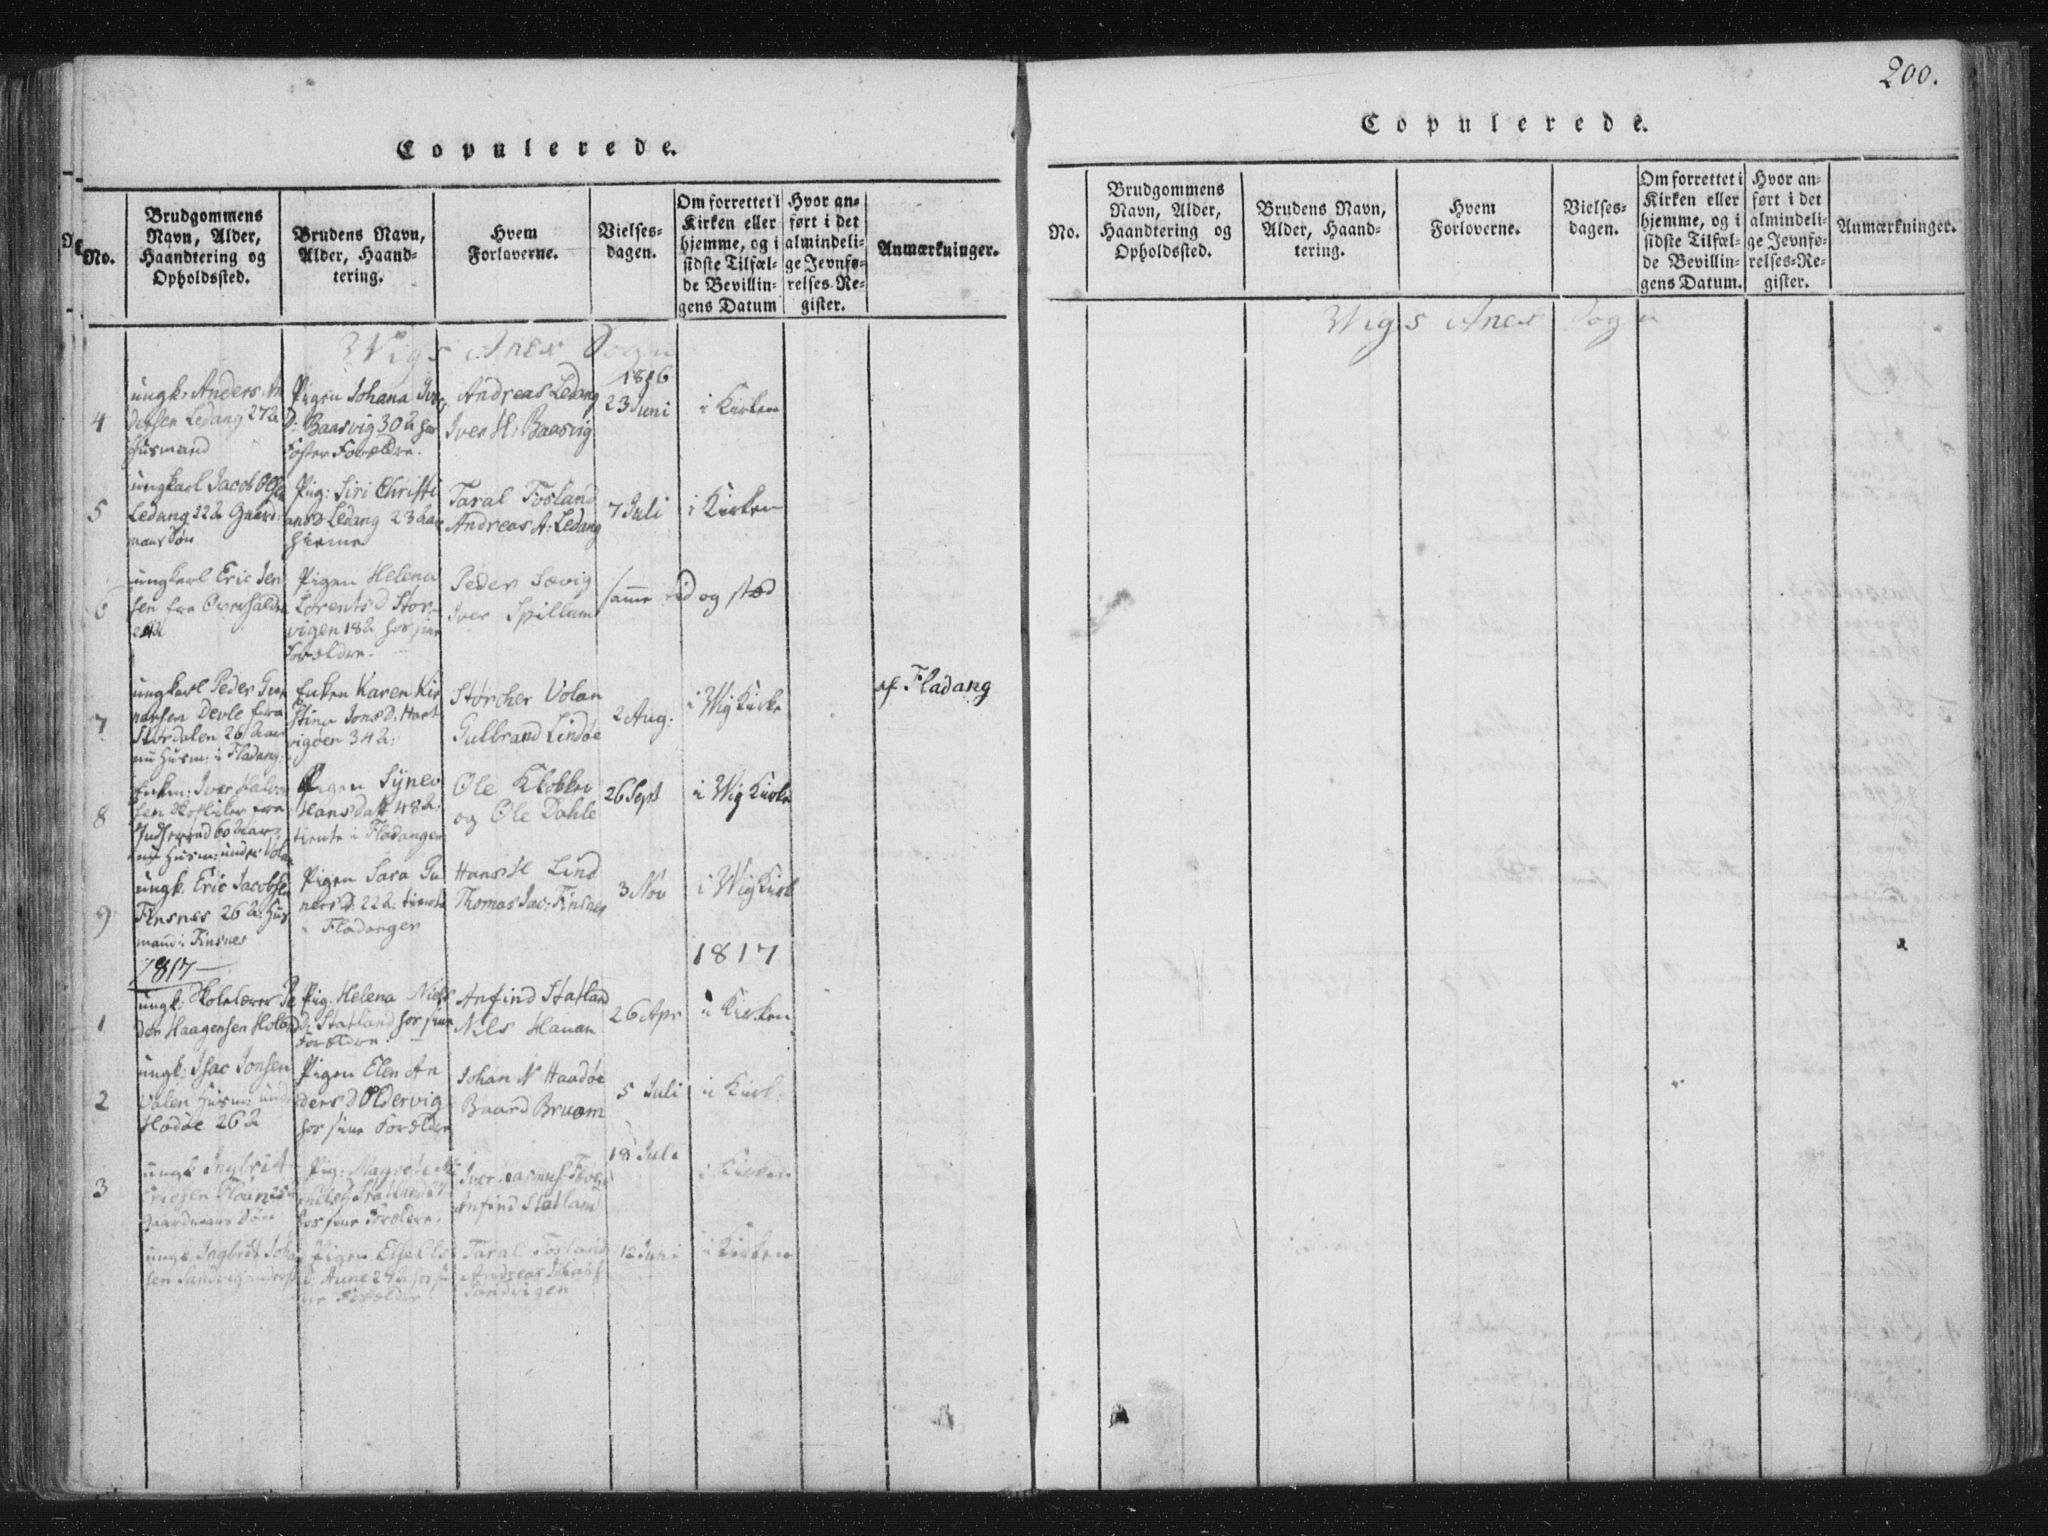 Copulerede.
No.
Brudgommens
Navn, Alder,
Haandtering og
Opholdssted.
Brudens Navn,
Alder, Haand-
tering.
Hvem
Forloverne.
Vielses-
dagen.
Om forrettet i
Kirken eller
hjemme, og i
sidste Tilfæl-
de Bevillin-
gens Datum
Hvor an-
ført i det
almindeli-
ge Jevnfø-
relses-Re-
gister.
Anmærkninger.
Wigs Aner Sogn
1816
4
ungk: Anders An
dersen Ledang 27 a
Husmand
Pigen Johana
D: Baasvig 30 a hos
Foster Forældre.
Andreas Ledang
Iver H: Baasvig
23 Juni
i Kirken
5
ungkarl Jacob Olsen
Ledang 22 a Gaard
mans Søn
Pig: Siri Christi
ansd Ledang 23 aar
hieme
Taral Fosland
Andreas A: Ledang
7 Juli
i Kirken
6
ungkarl Eric Jen
sen fra Overhalden
Pigen Helena
Lorentsd Stor-
vigen 18 a hos sine
Forældre.
Peder Sævig
Iver Spillum
samme tid og stæd
7
ungkarl Peder Gun
narsen Devle fra
Størdalen 26 aar
nu Husm: i Fladang.
Enken Karen Kir
stina Jonsd: Hart
vigøen 34 a:
Størcher Volan
Gulbrand Lindøe
2 Aug:
i Wig Kirke
af Fladang
8
Enkm: Iver Halvor
sen fra
60 aar
nu Husm: under
Pigen Synev
Hansdatt 48 a:
tiente i Fladanger
Ole Klobben
og Ole Dahle
26 Sept
i Wig Kirke
9
ungk. Eric Jacobsen
Finsnes 26 a: Hus
mand i Finsnes
Pigen Sara Gu
nersd: 22 a: tiente
i Fladanger
Hans H Lind
Thomas Jac: Finsnes
3 Nov
i Wig Kirk
1817
1817
1
ungk: Skolelærer Pe
der Haagensen Holand
Pig: Helena Niels
D: Statland hos sine
Forældre.
Anfind Statland
Nils Hauan
26 Apr
i Kirken
2
ungk: Isac Jonsen
Valen Husm: under
Hodøe 26 a
Pigen Elen An
dersd Oldervig
hos sine Forældre
Johan N Haadøe
Baard Bruem
5 Juli
i Kirk:
3
ungk Ingbrit
Ericsen
Gaardmans Søn
Pig: Magrete
Statland
hos sine Forældre.
Iver Rasmus:
Anfind Statland
18 Juli
i Kirken
ungk: Ingbrit Johan
sen Sandvig
Pigen Else Ols
D: Aune 24 a hos si
ne Forældre
Taral Fosland
Andreas Johans
Sandvigen
12 Juni
i Kirken
200.
Copulerede.
No.
Brudgommens
Navn, Alder,
Haandtering og
Opholdssted.
Brudens Navn,
Alder, Haand-
tering.
Hvem
Forloverne.
Vielses-
dagen.
Om forrettet i
Kirken eller
hjemme, og i
sidste Tilfæl-
de Bevillin-
gens Datum.
Hvor an-
ført i det
almindeli-
ge Jevnfø-
relses-Re-
gister.
Anmærkninger.
Wigs Anex Sogn